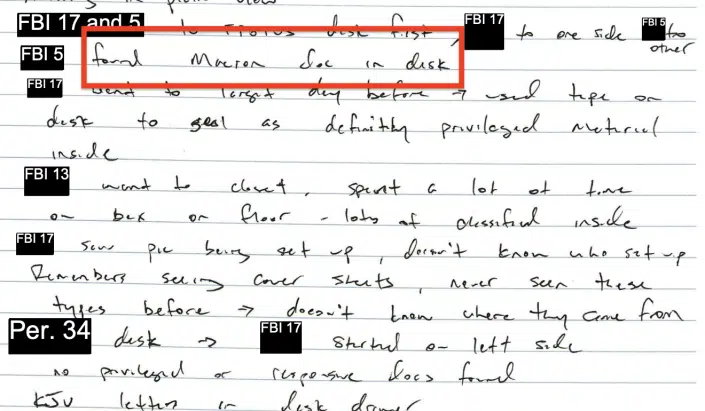 FBI 17 and 5 to TTOTUS desk first, FBI 17 to one side FBI 5 to
other
FBI 5 found Macron doc in desk
FBI 17 went to target day before → used tape on
desk to seal as definitely privileged material
inside
FBI 13 went to closet, spent a lot of time
on box on floor - lots of classified inside
FBI 17 saw pic being set up, doesn't know who set up
Remembers seeing cover sheets, never seen these
types before → doesn't know where they came from
Per. 34 desk → FBI 17 started on left side
no privileged or responsive docs found
KJU letters in desk drawer